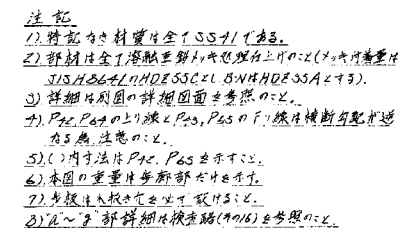 注記
1). 特記なき材質は全てSS41である。
2). 部材は全て溶融亜鉛メッキ処理仕上げのこと(メッキ付着量は
JISH8641のHDZ55とし B・NはHDZ35Aとする).
3) 詳細は別図の詳細図面を参照のこと.
4). P42, P64の上り線とP43, P65の下り線は横断勾配が逆
なる為 注意のこと.
5). ( )内寸法はP42, P65を示すこと.
6). 本図の重量は 部だけを示す.
7). 歩板は 必ず設けること.
8) "a"~"g"部詳細は検査路(その16)を参照のこと.